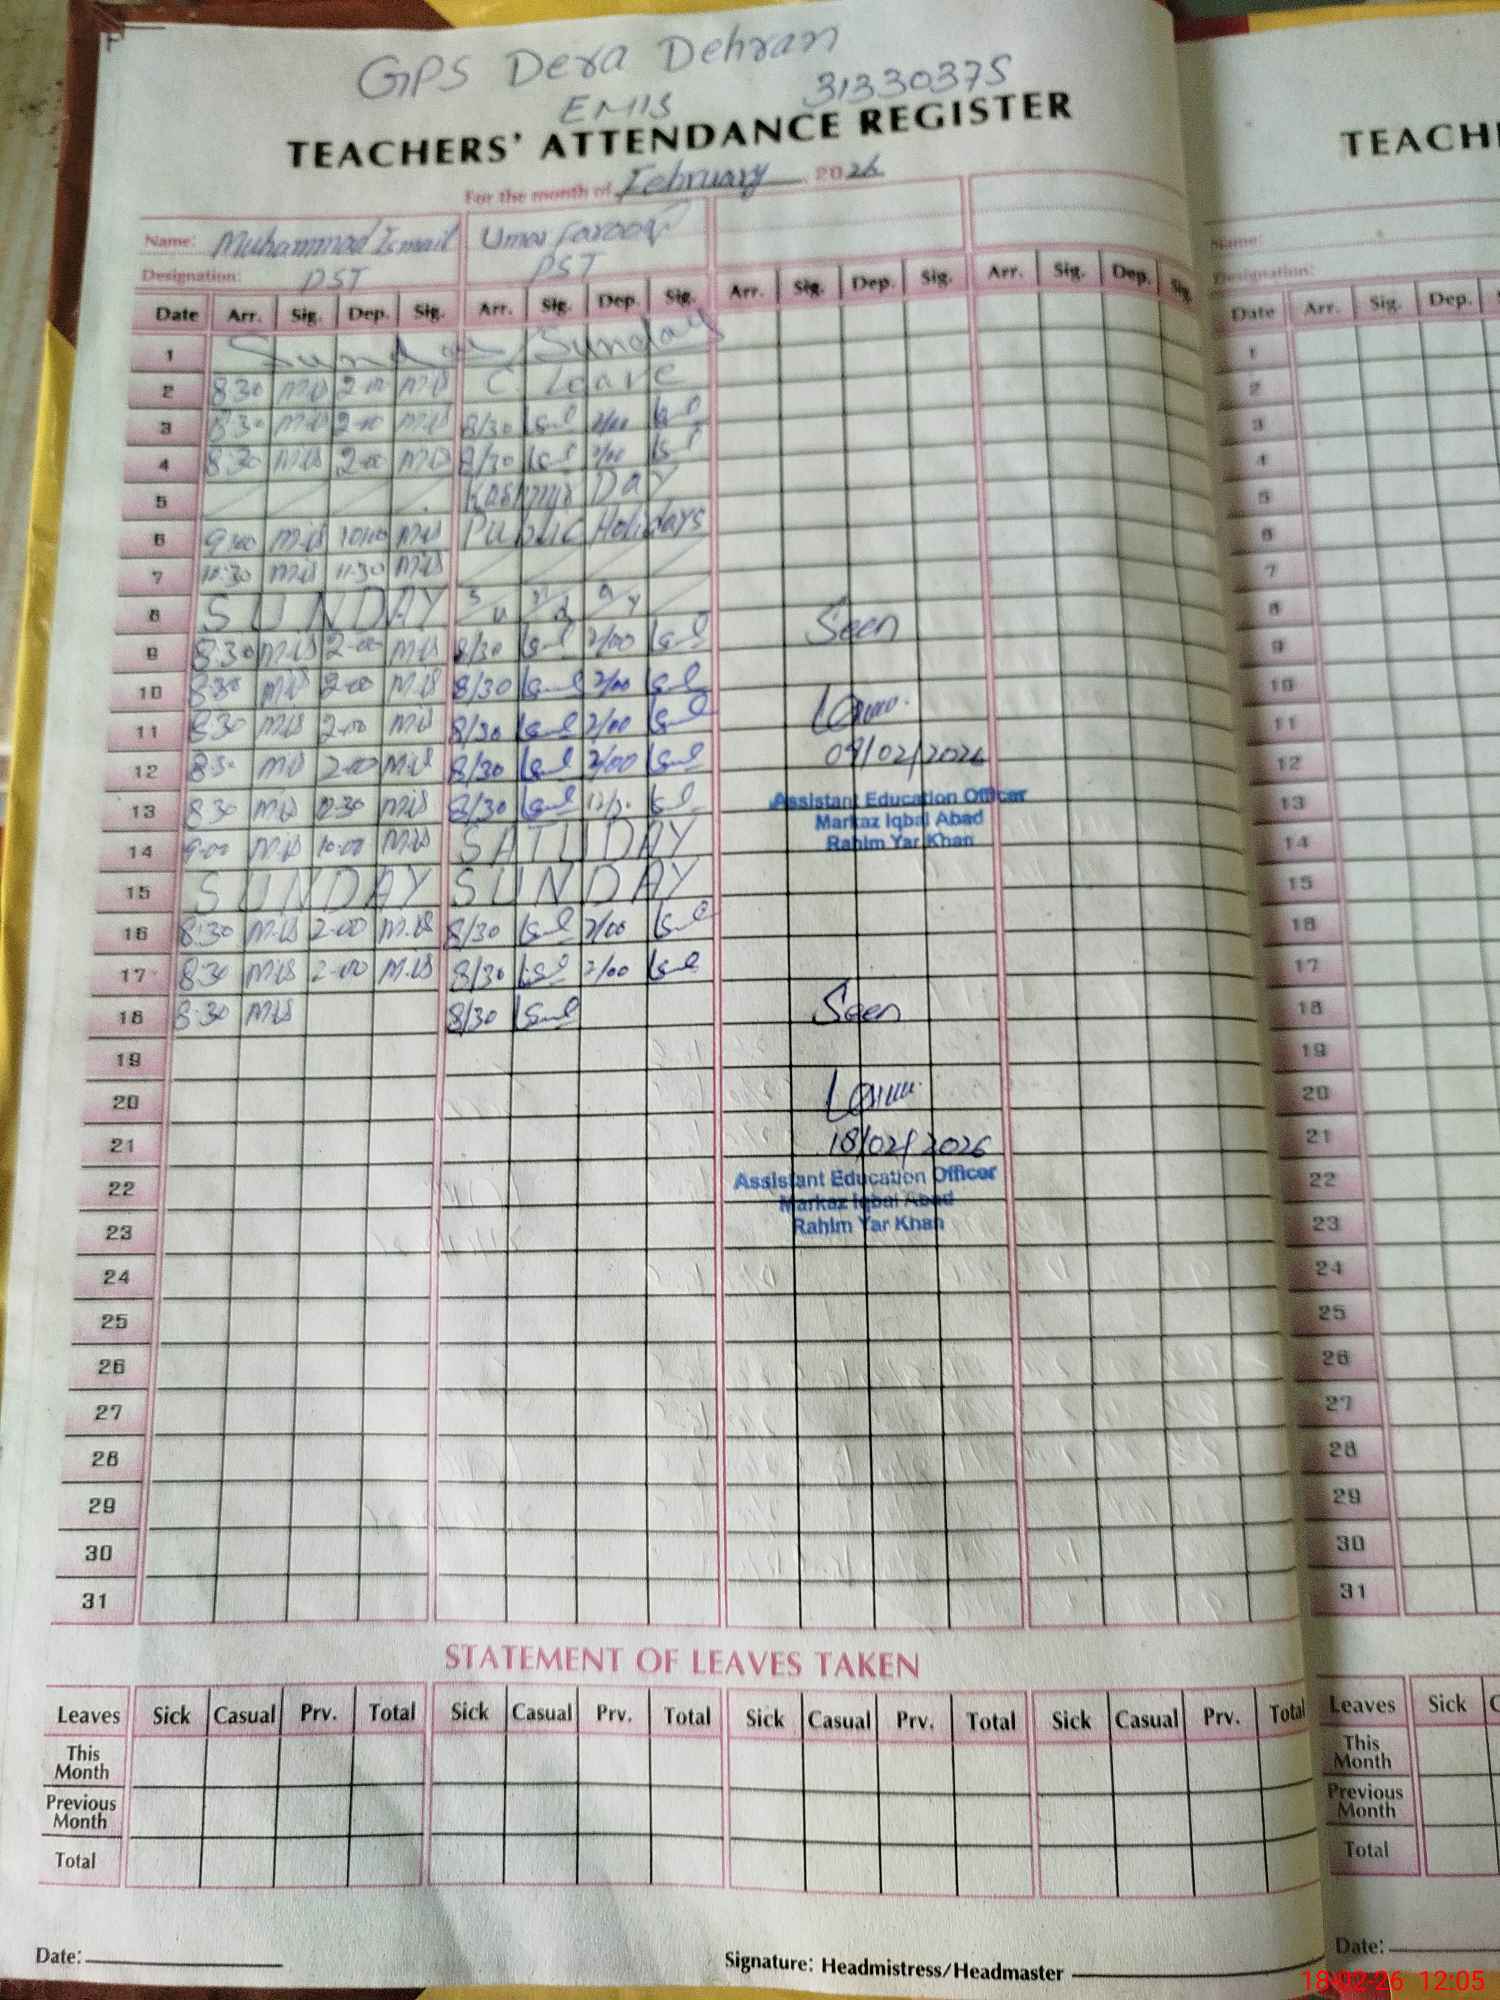 GPS Dera Dehran
EMIS 31330375
TEACHERS' ATTENDANCE REGISTER
For the month of February 2026
Name: Muhammad Ismail Umar Farooq
Designation: PST PST
Date Arr. Sig. Dep. Sig. Arr. Sig. Dep. Sig. Arr. Sig. Dep. Sig. Arr. Sig. Dep. Sig.
1 Sunday Sunday
2 8:30 M.IS 2-00 M.IS C Leave
3 8:30 M.IS 2-00 M.IS 8/30 2/00
4 8:30 M.IS 2-00 M.IS 8/30 2/00
5 Kashmir DAY
6 9:00 M.IS 10:00 M.IS Public Holidays
7 10:30 M.IS 11:30 M.IS
8 SUNDAY Sunday
9 8:30 M.IS 2-00 M.IS 8/30 2/00
10 8:30 M.IS 2-00 M.IS 8/30 2/00
11 8:30 M.IS 2-00 M.IS 8/30 2/00
12 8:30 M.IS 2-00 M.IS 8/30 2/00
13 8:30 M.IS 12:30 M.IS 8/30 12/30
14 9:00 M.IS 10:00 M.IS SATUDAY
15 SUNDAY SUNDAY
16 8:30 M.IS 2-00 M.IS 8/30 2/00
17 8:30 M.IS 2-00 M.IS 8/30 2/00
18 8:30 M.IS 8/30
19
20
21
22
23
24
25
26
27
28
29
30
31
Seen
09/02/2026
Assistant Education Officer
Markaz Iqbal Abad
Rahim Yar Khan
Seen
18/02/2026
Assistant Education Officer
Markaz Iqbal Abad
Rahim Yar Khan
STATEMENT OF LEAVES TAKEN
Leaves Sick Casual Prv. Total Sick Casual Prv. Total Sick Casual Prv. Total Sick Casual Prv. Total
This
Month
Previous
Month
Total
Date:
Signature: Headmistress/Headmaster
TEACH
Name:
Designation:
Date Arr. Sig. Dep.
1
2
3
4
5
6
7
8
9
10
11
12
13
14
15
16
17
18
19
20
21
22
23
24
25
26
27
28
29
30
31
Leaves Sick
This
Month
Previous
Month
Total
Date:
18-02-26 12:05